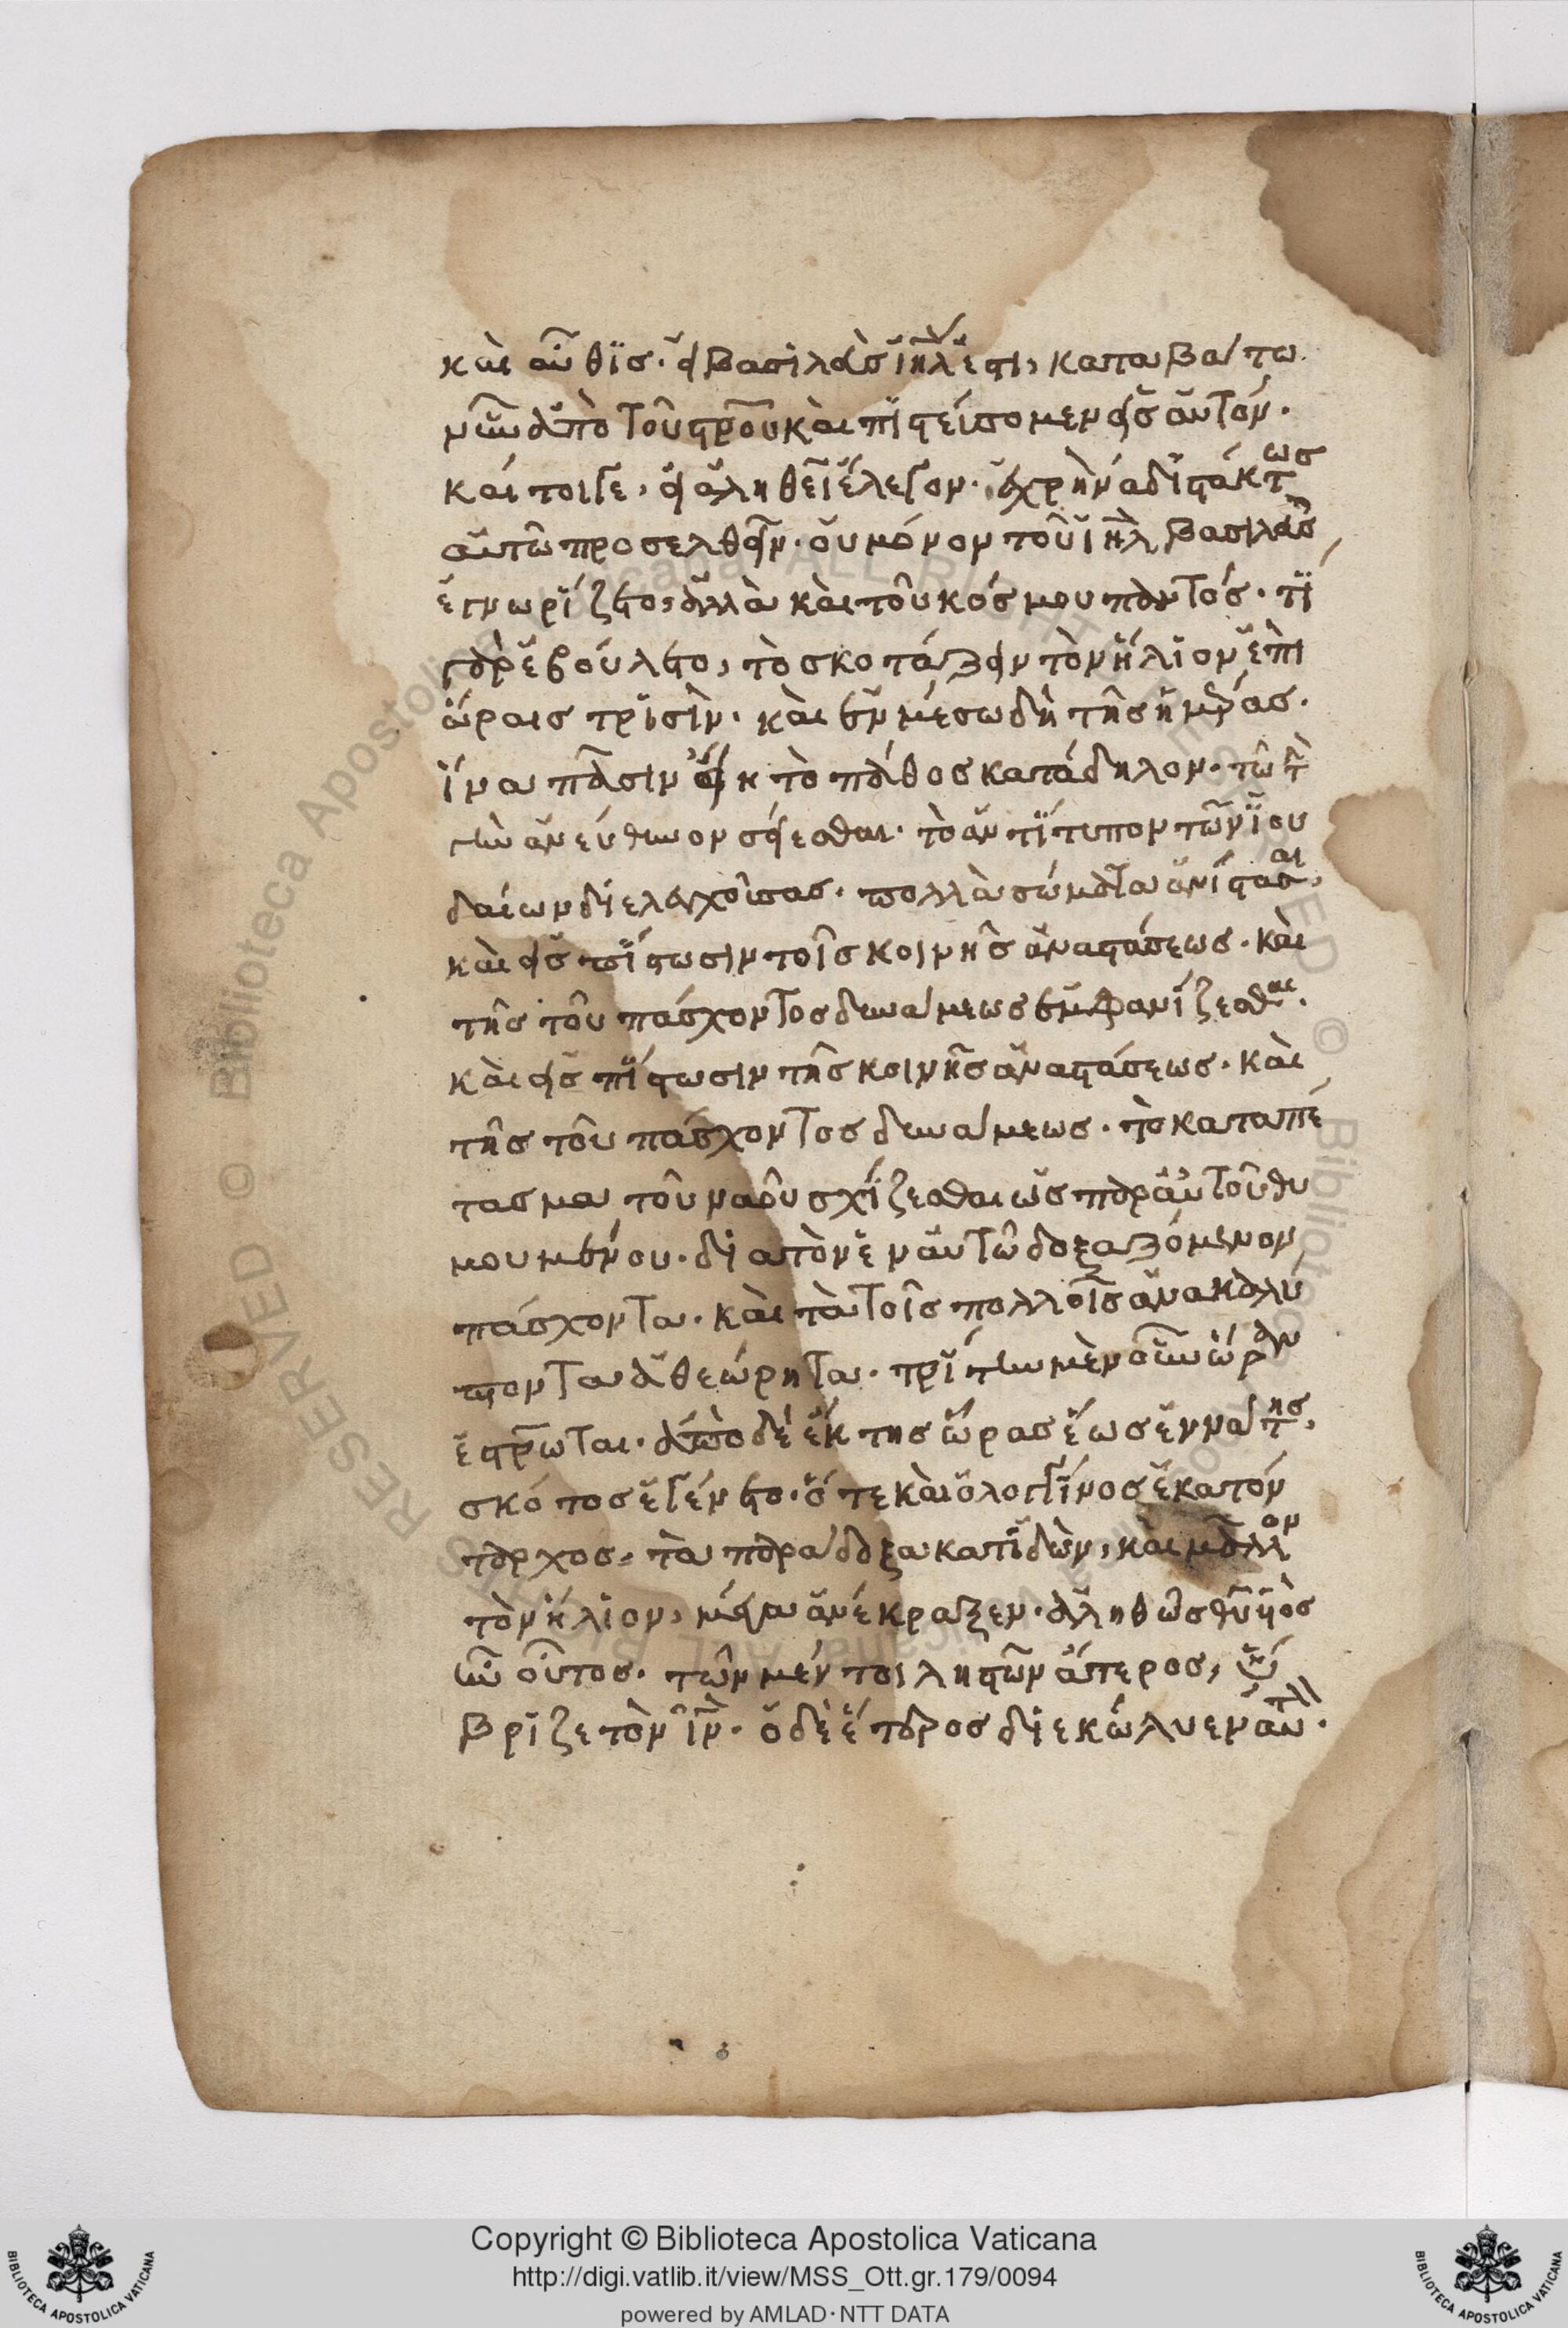 και αὖθις· εἰ βασιλεὺς ἰηλ ἐστι, καταβάτω
νῦν ἀπὸ τοῦ στροῦ καὶ πιστεύσομεν εἰς αὐτόν·
καίτοιγε, εἰ ἀληθεῖ ἔλεγον· ἐχρὴν ἀδιστάκτως
αὐτῶ προσελθεῖν· οὐ μόνον τοῦ ἰηλ βασιλεὺς
ἐγνωρίζετο, ἀλλὰ καὶ τοῦ κόσμου παντός· τί
γὰρ ἐβούλετο, τὸ σκοτάζειν τὸν ἥλιον ἐπὶ
ὥραις τρισὶν· καὶ ἐν μέσω δὴ τῆς ἡμέρας·
ἵνα πᾶσιν εἴη τὸ πάθος κατάδηλον· τῶ τε
τὴν ἀνεύθυνον σείεσθαι· τὸ ἀντίτυπον τῶν ἰου
δαίων διελεγχούσας· πολλὰ σώματα ἀνίστασαι,
καὶ εἰς πίστωσιν τοῖς κοινῆς ἀναστάσεως· καὶ
τῆς τοῦ πάσχοντος δυνάμεως ἐμφανίζεσθαι·
καὶ εἰς πίστωσιν τῆς κοινῆς ἀναστάσεως· καὶ
τῆς τοῦ πάσχοντος δυνάμεως· τὸ καταπέ
τασμα τοῦ ναοῦ σχίζεσθαι ὡς παρ' αὐτοῦ θυ
μουμένου· διὰ τὸν ἐν αὐτῶ δοξαζόμενον,
πάσχοντα· καὶ τὰ τοῖς πολλοῖς ἀνακαλύ
πτοντα ἀθεώρητα· τρίτην μὲν οὖν ὥραν
ἐστρωται· ἀπὸ δὲ ἕκτης ὥρας ἕως ἐννάτης,
σκότος ἐγένετο· ὅτε καὶ ὁ λογγῖνος ἑκατόν
ταρχος, τὰ παράδοξα κατιδὼν, καὶ μᾶλλον
τὸν ἥλιον, μέγα ἀνέκραζεν· ἀληθῶς θυ υἱὸς
ἦν οὗτος· τῶν μέντοι ληστῶν ἅτερος, ὕ
βριζε τὸν ιν· ὁ δὲ ἕτερος διεκώλυεν αὐτόν·
Copyright © Biblioteca Apostolica Vaticana
http://digi.vatlib.it/view/MSS_Ott.gr.179/0094
powered by AMLAD·NTT DATA
BIBLIOTECA APOSTOLICA VATICANA
BIBLIOTECA APOSTOLICA VATICANA